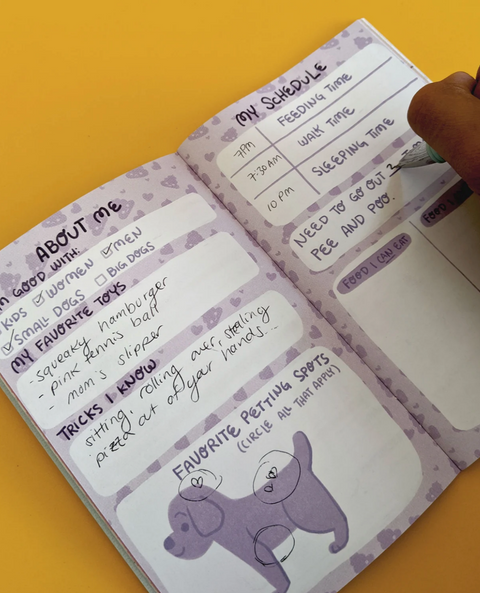 ABOUT ME
I'M GOOD WITH:
KIDS WOMEN MEN
SMALL DOGS BIG DOGS
MY FAVORITE TOYS
- squeaky hamburger
- pink tennis ball
- mom's slipper
TRICKS I KNOW
sitting, rolling over, stealing
pizza out of your hands...
FAVORITE PETTING SPOTS
(CIRCLE ALL THAT APPLY)
MY SCHEDULE
7PM FEEDING TIME
7:30AM WALK TIME
10PM SLEEPING TIME
NEED TO GO OUT 3
PEE AND POO.
FOOD I CAN EAT
FOOD I